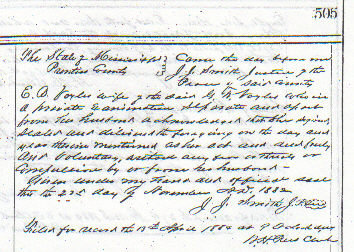 505
The State of Mississippi Came this day before me
Prentiss County J. J. Smith Justice of the
Peace of said County
E. B. wife of the said G. W. who in
a private examination separate and apart
from her husband acknowledged that she signed
sealed and delivered the foregoing on the day and
year therein mentioned as her act and deed freely
and voluntary, without any or
Compulsion by or from her husband.
Given under my hand and official seal
this the 22d day of November A.D. 1882
J. J. Smith J.P.
Filed for record the April 1884 at 9 Oclock
Clerk